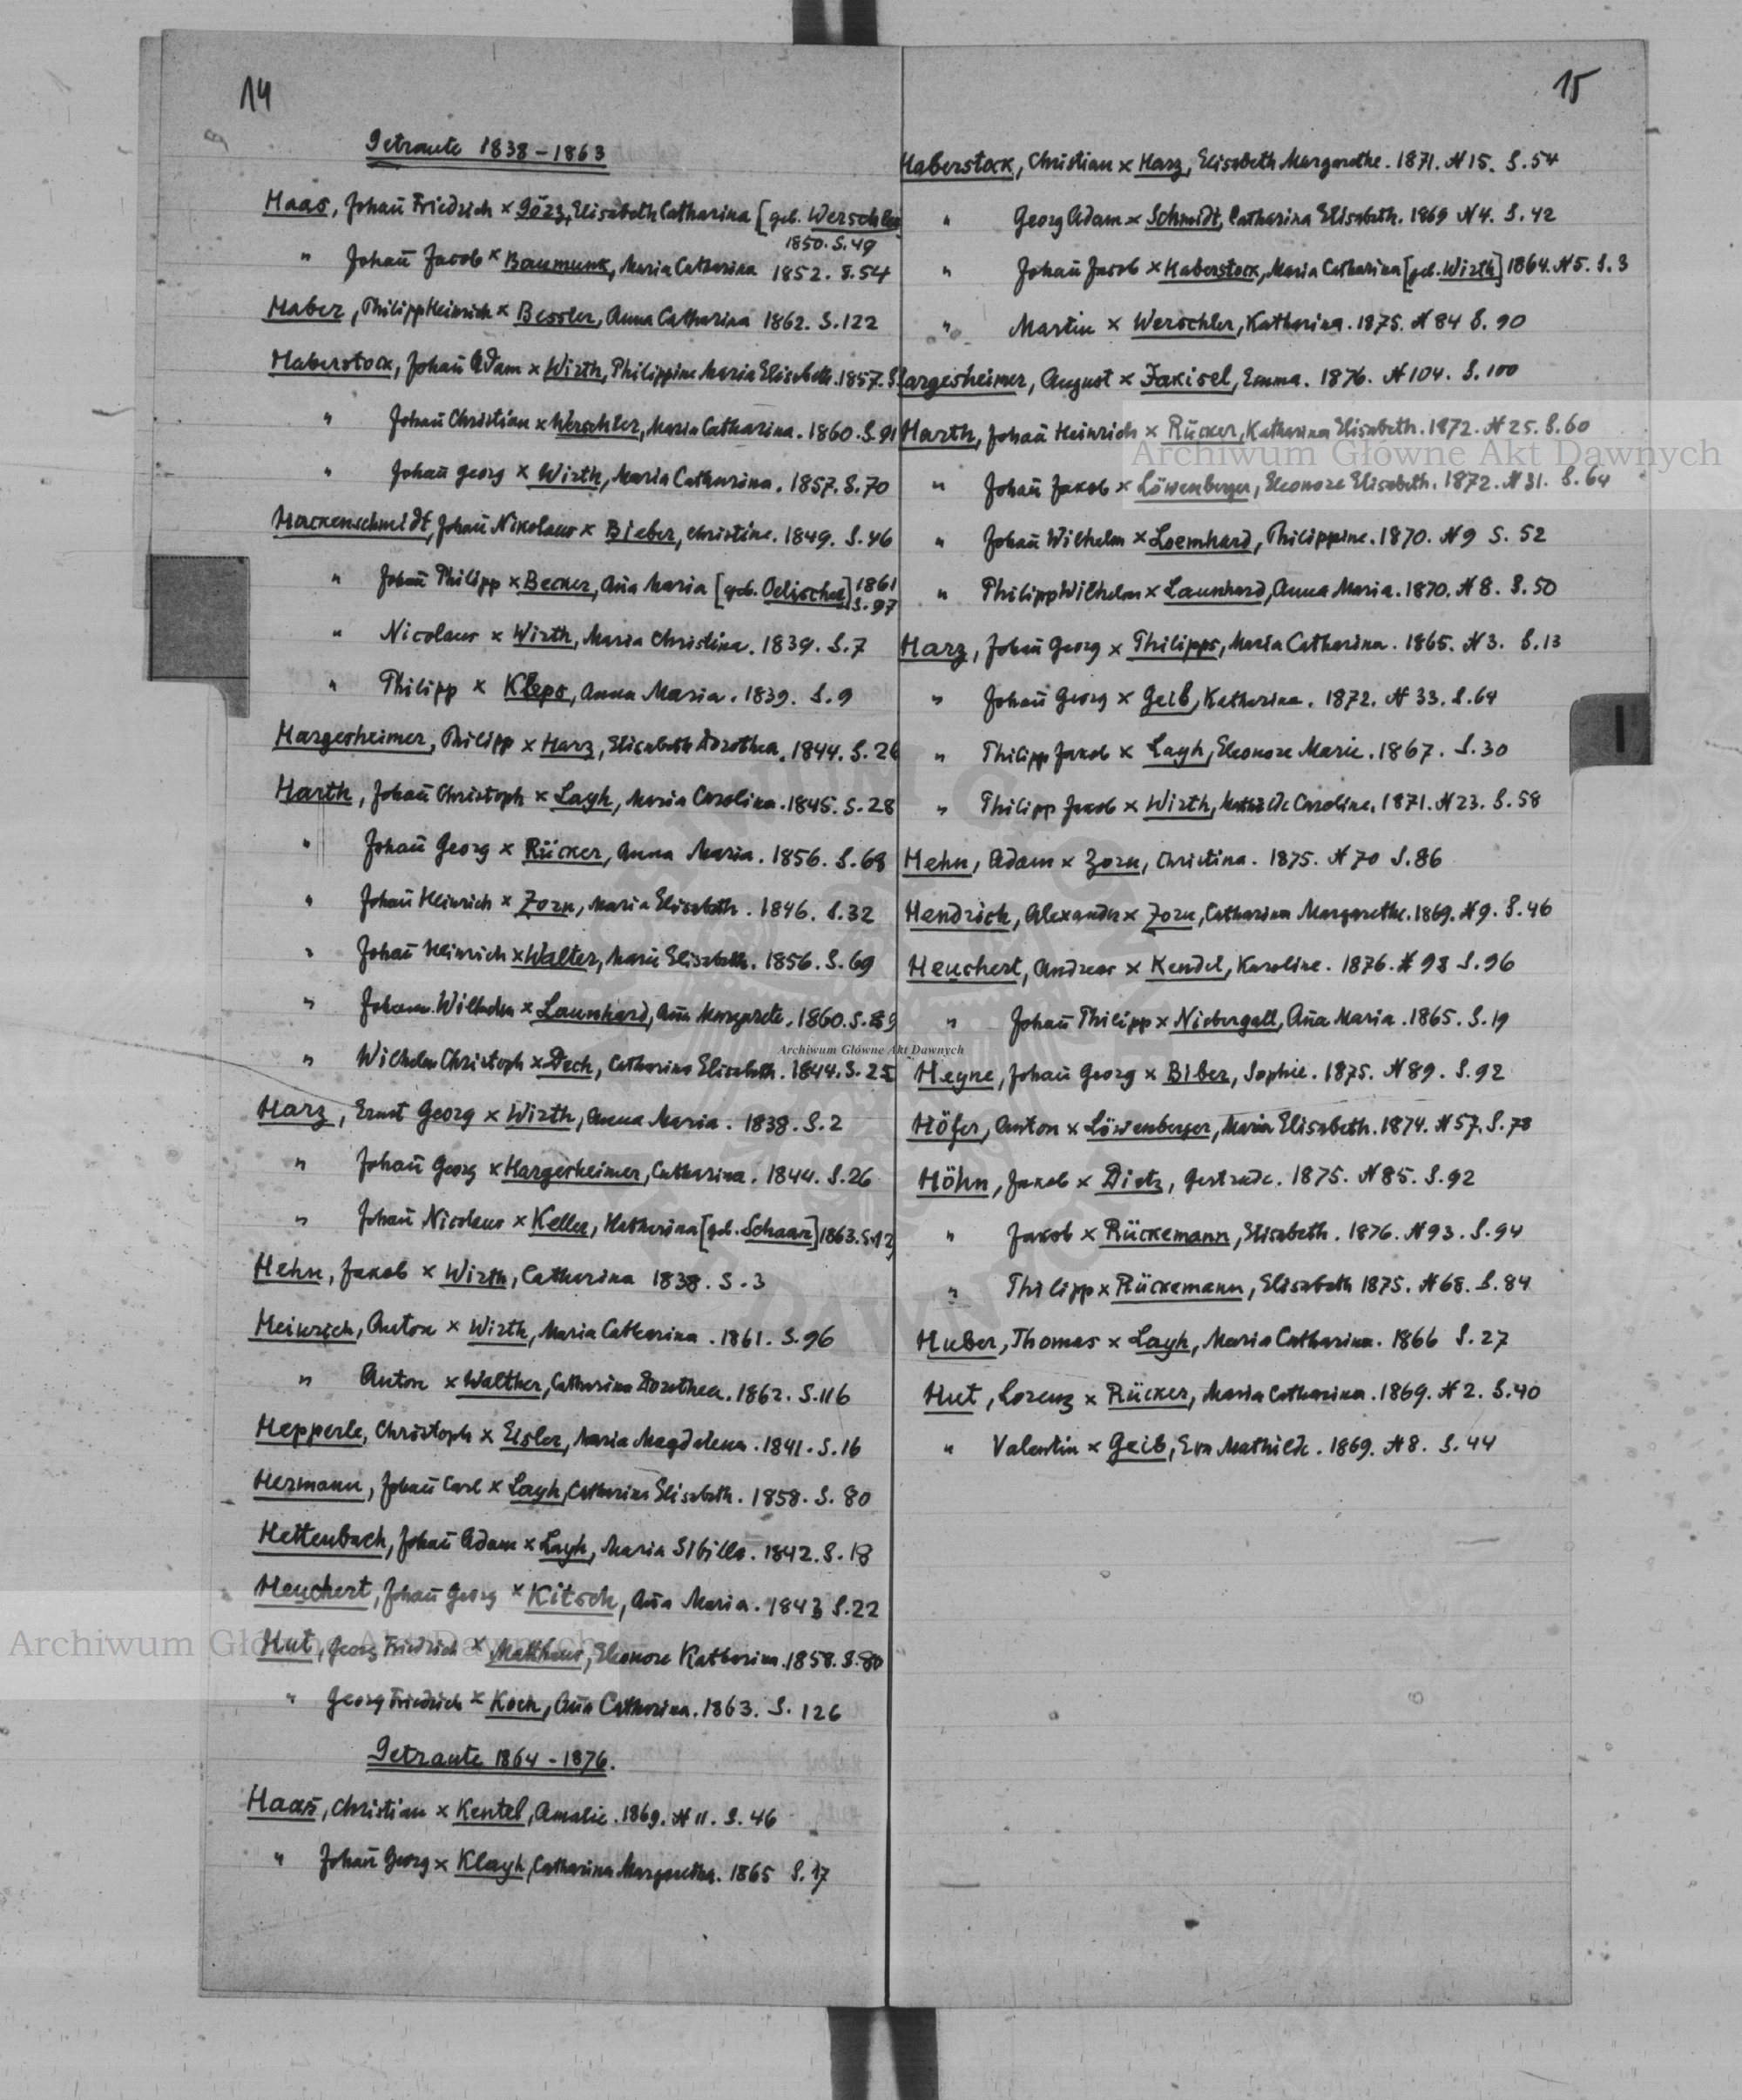 14
Getraute 1838-1863
Haas, Johañ Friedrich x Görz, Elisabeth Catharina [geb. Werschler
1850. S. 49
" Johañ Jacob x Baumunk, Maria Catharina 1852. S. 54
Haber, Philipp Heinrich x Bessler, Anna Catharina 1862. S. 122
Haberstock, Johañ Adam x Wirth, Philippine Maria Elisabeth. 1857. S.
" Johañ Christian x Werschler, Maria Catharina. 1860. S. 91
" Johañ Georg x Wirth, Maria Catharina. 1857. S. 70
Hackenschmidt, Johañ Nikolaus x Bieber, Christine. 1849. S. 46
" Johañ Philipp x Becker, Aña Maria [geb. Oelischel] 1861
S. 97
" Nicolaus x Wirth, Maria Christina. 1839. S. 7
" Philipp x Kleps, Anna Maria. 1839. S. 9
Hargesheimer, Philipp x Harz, Elisabeth Dorothea. 1844. S. 26
Harth, Johañ Christoph x Layh, Maria Carolina. 1845. S. 28
" Johañ Georg x Rücker, Anna Maria. 1856. S. 68
" Johañ Heinrich x Zorn, Maria Elisabeth. 1846. S. 32
" Johañ Heinrich x Walter, Marie Elisabeth. 1856. S. 69
" Johann Wilhelm x Launhard, Aña Margarete. 1860. S. 89
" Wilhelm Christoph x Dech, Catharina Elisabeth. 1844. S. 25
Harz, Ernst Georg x Wirth, Anna Maria. 1838. S. 2
" Johañ Georg x Hargesheimer, Catharina. 1844. S. 26
" Johañ Nicolaus x Keller, Katharina [geb. Schaare] 1863. S. 12
Hehn, Jakob x Wirth, Catharina 1838. S. 3
Heinrich, Anton x Wirth, Maria Catharina. 1861. S. 96
" Anton x Walther, Catharina Dorothea. 1862. S. 116
Hepperle, Christoph x Eisler, Maria Magdalena. 1841. S. 16
Hermann, Johañ Carl x Layh, Catharina Elisabeth. 1858. S. 80
Hettenbach, Johañ Adam x Layh, Maria Sibilla. 1842. S. 18
Heuchert, Johañ Georg x Kitsch, Aña Maria. 1843 S. 22
Hut, Georg Friedrich x Matthaus, Eleonore Katharina. 1858. S. 80
" Georg Friedrich x Koch, Aña Catharina. 1863. S. 126
Getraute 1864-1876.
Haas, Christian x Kentel, Amalie. 1869. N 11. S. 46
" Johañ Georg x Klayh, Catharina Margaretha. 1865 S. 17
15
Haberstock, Christian x Harz, Elisabeth Margarethe. 1871. N 15. S. 54
" Georg Adam x Schmidt, Catharina Elisabeth. 1869 N 4. S. 42
" Johañ Jacob x Haberstock, Maria Catharina [geb. Wirth] 1864. N 5. S. 3
" Martin x Werschler, Katharina. 1875. N 84 S. 90
Hargesheimer, August x Jakisel, Emma. 1876. N 104. S. 100
Harth, Johañ Heinrich x Rücker, Katharina Elisabeth. 1872. N 25. S. 60
" Johañ Jakob x Löwenberger, Eleonore Elisabeth. 1872. N 31. S. 64
" Johañ Wilhelm x Loemhard, Philippine. 1870. N 9 S. 52
" Philipp Wilhelm x Launhard, Anna Maria. 1870. N 8. S. 50
Harz, Johañ Georg x Philipps, Maria Catharina. 1865. N 3. S. 13
" Johañ Georg x Geib, Katharina. 1872. N 33. S. 64
" Philipp Jakob x Layh, Eleonore Marie. 1867. S. 30
" Philipp Jakob x Wirth, Mathilde Caroline. 1871. N 23. S. 58
Hehn, Adam x Zorn, Christina. 1875. N 70 S. 86
Hendrich, Alexander x Zorn, Catharina Margarethe. 1869. N 9. S. 46
Heuchert, Andreas x Kendel, Karoline. 1876. N 98 S. 96
" Johañ Philipp x Niebergall, Aña Maria. 1865. S. 19
Heyne, Johañ Georg x Biber, Sophie. 1875. N 89. S. 92
Höfer, Anton x Löwenberger, Maria Elisabeth. 1874. N 57. S. 78
Höhn, Jakob x Dietz, Gertrude. 1875. N 85. S. 92
" Jakob x Rückemann, Elisabeth. 1876. N 93. S. 94
" Philipp x Rückemann, Elisabeth 1875. N 68. S. 84
Huber, Thomas x Layh, Maria Catharina. 1866 S. 27
Hut, Lorenz x Rücker, Maria Catharina. 1869. N 2. S. 40
" Valentin x Geib, Eva Mathilde. 1869. N 8. S. 44
Archiwum Główne Akt Dawnych
Archiwum Główne Akt Dawnych
Archiwum Główne Akt Dawnych